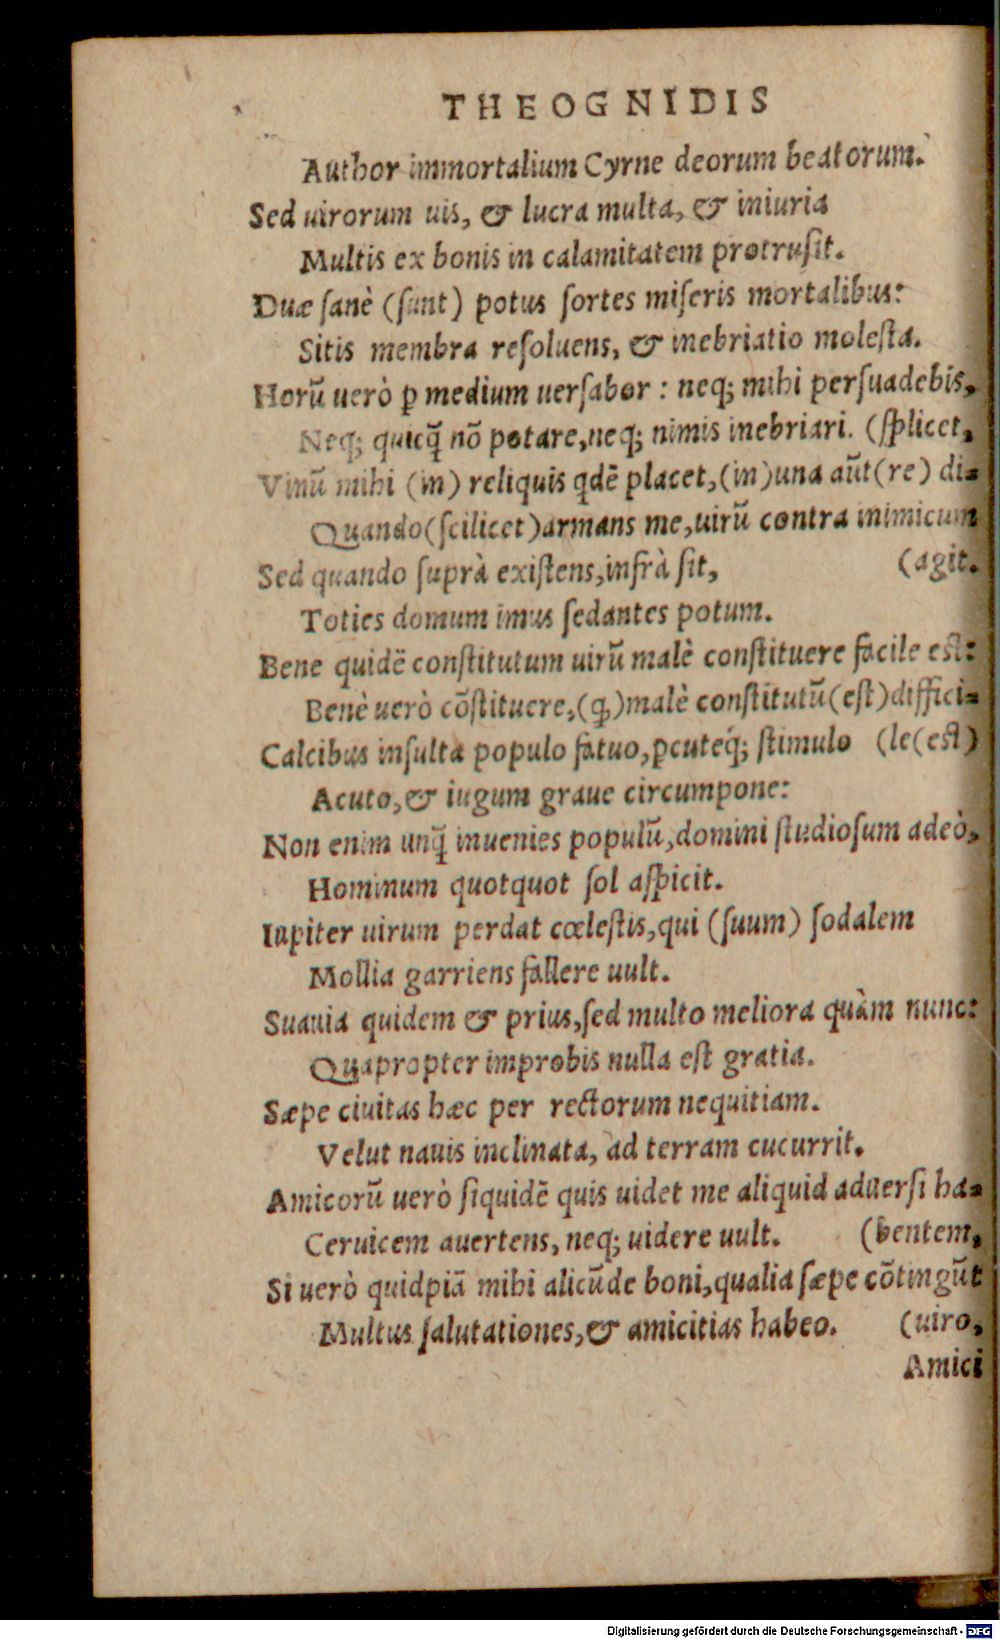 THEOGNIDIS
Author immortalium Cyrne deorum beatorum.
Sed uirorum uis, & lucra multa, & iniuria
Multis ex bonis in calamitatem protrusit.
Duæ sanè (sunt) potus sortes miseris mortalibus:
Sitis membra resoluens, & inebriatio molesta.
Horũ uerò ꝑ medium uersabor : neq; mihi persuadebis,
Neq; quicq̃ nõ potare, neq; nimis inebriari. (splicet,
Vinũ mihi (in) reliquis qdẽ placet, (in) una aũt (re) di-
Quando (scilicet) armans me, uirũ contra inimicum
Sed quando suprà existens, infrà sit, (agit.
Toties domum imus sedantes potum.
Bene quidẽ constitutum uirũ malè constituere facile est:
Benè uerò cõstituere, (q) malè constitutũ (est) diffici-
Calcibus insulta populo fatuo, ꝑcuteq́; stimulo (le (est)
Acuto, & iugum graue circumpone:
Non enim unq̃ inuenies populũ, domini studiosum adeò,
Hominum quotquot sol aspicit.
Iupiter uirum perdat cœlestis, qui (suum) sodalem
Mollia garriens fallere uult.
Suauia quidem & prius, sed multo meliora quàm nunc:
Quapropter improbis nulla est gratia.
Sæpe ciuitas hæc per rectorum nequitiam.
Velut nauis inclinata, ad terram cucurrit.
Amicorũ uerò siquidẽ quis uidet me aliquid aduersi ha-
Ceruicem auertens, neq; uidere uult. (bentem,
Si uerò quidpiã mihi alicũde boni, qualia sæpe cõtingũt
Multus salutationes, & amicitias habeo. (uiro,
Amici
Digitalisierung gefördert durch die Deutsche Forschungsgemeinschaft - DFG